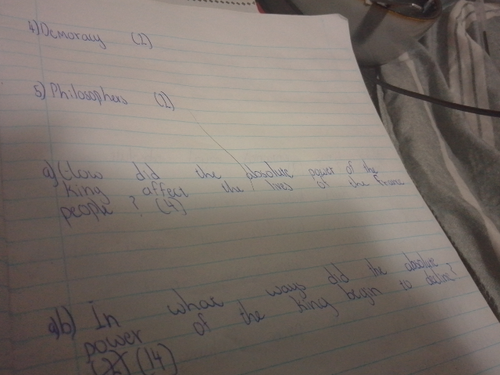 4) Democracy (1)
5) Philosophers (1)
a) How did the absolute power of the
King affect the lives of the
people? (14)
b) In what ways did the absolute
power of the King begin to decline?
(14)